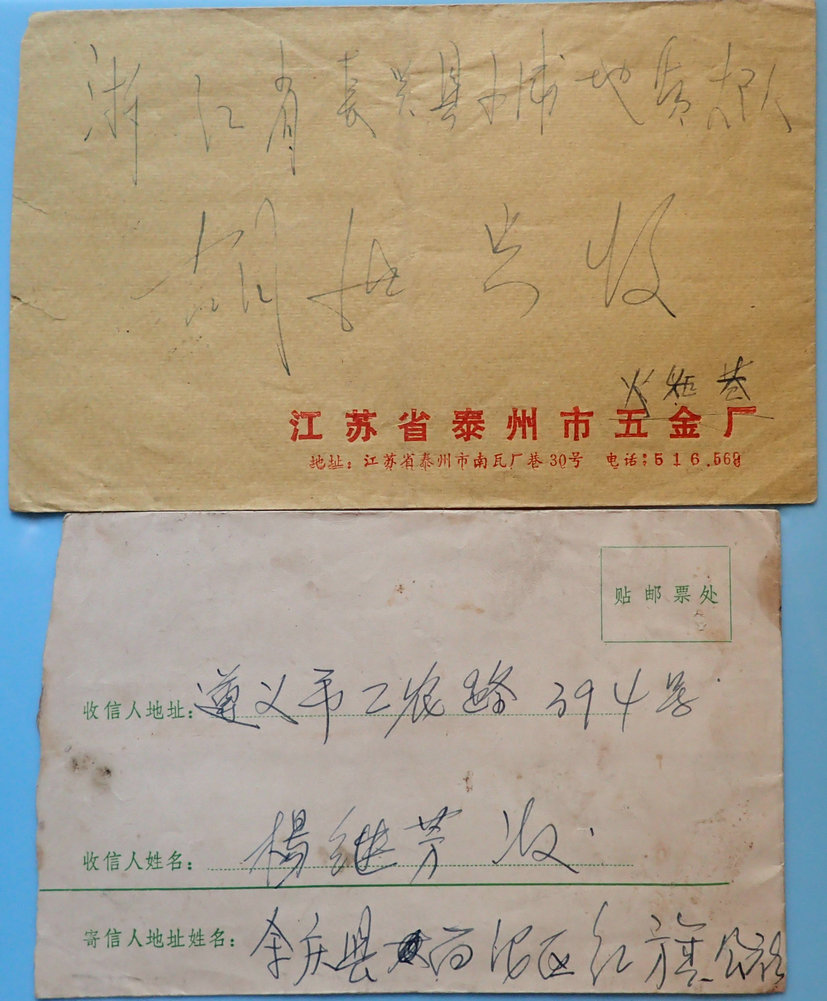 浙江省长兴县小浦地质大队
胡 兴收
火炬巷
江苏省泰州市五金厂
地址：江苏省泰州市南瓦厂巷30号 电话：516.569
贴邮票处
收信人地址：遵义市工农路394号
收信人姓名：杨继芳收
寄信人地址姓名：余庆县 区红旗公社